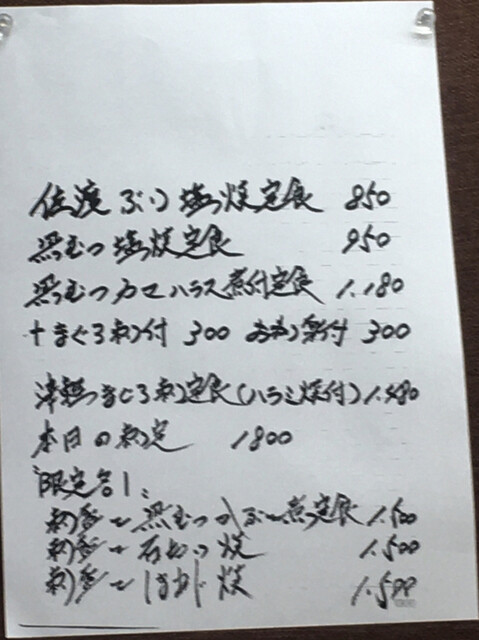 佐渡ぶり塩焼定食 850
黒むつ塩焼定食 950
黒むつカマハラス煮付定食 1.180
+まぐろ刺付 300 お刺身付 300
津軽まぐろ刺定食(ハラミ焼付) 1.580
本日の刺定 1800
限定各1、
刺身と黒むつかぶと煮定食 1.500
刺身と 焼 1.500
刺身と 焼 1.500